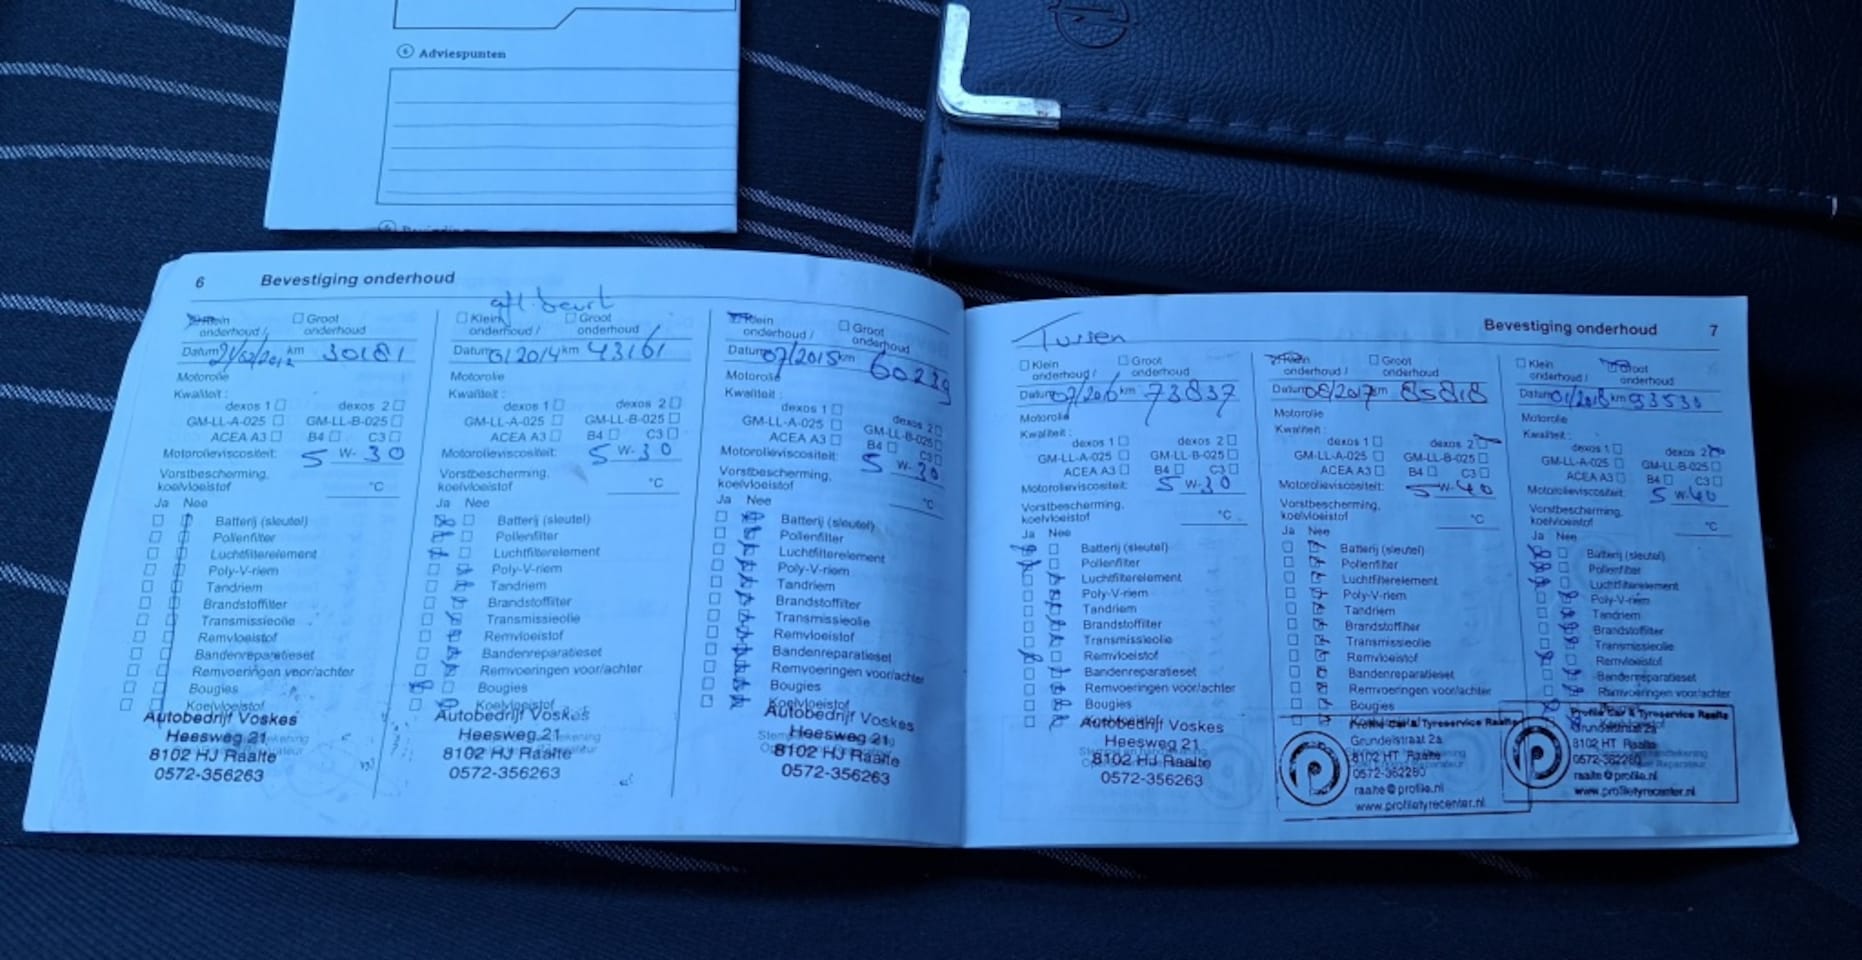 6 Adviespunten
6 Bevestiging onderhoud
afl. beurt
Klein onderhoud / Groot onderhoud
Datum 21/02/2012 km 30181
Motorolie
Kwaliteit :
dexos 1 dexos 2
GM-LL-A-025 GM-LL-B-025
ACEA A3 B4 C3
Motorolieviscositeit: 5 W- 30
Vorstbescherming,
koelvloeistof °C
Ja Nee
Batterij (sleutel)
Pollenfilter
Luchtfilterelement
Poly-V-riem
Tandriem
Brandstoffilter
Transmissieolie
Remvloeistof
Bandenreparatieset
Remvoeringen voor/achter
Bougies
Koelvloeistof
Autobedrijf Voskes
Heesweg 21
8102 HJ Raalte
0572-356263
Klein onderhoud / Groot onderhoud
Datum 01 2014 km 43161
Motorolie
Kwaliteit :
dexos 1 dexos 2
GM-LL-A-025 GM-LL-B-025
ACEA A3 B4 C3
Motorolieviscositeit: 5 W- 30
Vorstbescherming,
koelvloeistof °C
Ja Nee
Batterij (sleutel)
Pollenfilter
Luchtfilterelement
Poly-V-riem
Tandriem
Brandstoffilter
Transmissieolie
Remvloeistof
Bandenreparatieset
Remvoeringen voor/achter
Bougies
Koelvloeistof
Autobedrijf Voskes
Heesweg 21
8102 HJ Raalte
0572-356263
Klein onderhoud / Groot onderhoud
Datum 07/2015 km 60239
Motorolie
Kwaliteit :
dexos 1 dexos 2
GM-LL-A-025 GM-LL-B-025
ACEA A3 B4 C3
Motorolieviscositeit: 5 W- 30
Vorstbescherming,
koelvloeistof °C
Ja Nee
Batterij (sleutel)
Pollenfilter
Luchtfilterelement
Poly-V-riem
Tandriem
Brandstoffilter
Transmissieolie
Remvloeistof
Bandenreparatieset
Remvoeringen voor/achter
Bougies
Koelvloeistof
Autobedrijf Voskes
Heesweg 21
8102 HJ Raalte
0572-356263
Bevestiging onderhoud 7
Tussen
Klein onderhoud / Groot onderhoud
Datum 07/2016 km 73837
Motorolie
Kwaliteit :
dexos 1 dexos 2
GM-LL-A-025 GM-LL-B-025
ACEA A3 B4 C3
Motorolieviscositeit: 5 W- 30
Vorstbescherming,
koelvloeistof °C
Ja Nee
Batterij (sleutel)
Pollenfilter
Luchtfilterelement
Poly-V-riem
Tandriem
Brandstoffilter
Transmissieolie
Remvloeistof
Bandenreparatieset
Remvoeringen voor/achter
Bougies
Autobedrijf Voskes
Heesweg 21
8102 HJ Raalte
0572-356263
Klein onderhoud / Groot onderhoud
Datum 08/2017 km 85818
Motorolie
Kwaliteit :
dexos 1 dexos 2
GM-LL-A-025 GM-LL-B-025
ACEA A3 B4 C3
Motorolieviscositeit: 5 W- 40
Vorstbescherming,
koelvloeistof °C
Ja Nee
Batterij (sleutel)
Pollenfilter
Luchtfilterelement
Poly-V-riem
Tandriem
Brandstoffilter
Transmissieolie
Remvloeistof
Bandenreparatieset
Remvoeringen voor/achter
Bougies
Profile Car & Tyreservice Raalte
Grundelstraat 2a
8102 HT Raalte
0572-362280
raalte@profile.nl
www.profiletyrecenter.nl
Klein onderhoud / Groot onderhoud
Datum 01/2018 km 93530
Motorolie
Kwaliteit :
dexos 1 dexos 2
GM-LL-A-025 GM-LL-B-025
ACEA A3 B4 C3
Motorolieviscositeit: 5 W- 40
Vorstbescherming,
koelvloeistof °C
Ja Nee
Batterij (sleutel)
Pollenfilter
Luchtfilterelement
Poly-V-riem
Tandriem
Brandstoffilter
Transmissieolie
Remvloeistof
Bandenreparatieset
Remvoeringen voor/achter
Bougies
Profile Car & Tyreservice Raalte
Grundelstraat 2a
8102 HT Raalte
0572-362280
raalte@profile.nl
www.profiletyrecenter.nl